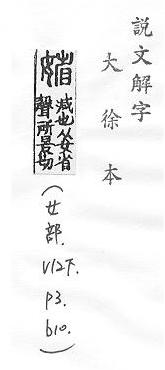 說文解字
大徐本
㛭 減也从女省
聲所景切
(女部. V12下. P3. b10.)